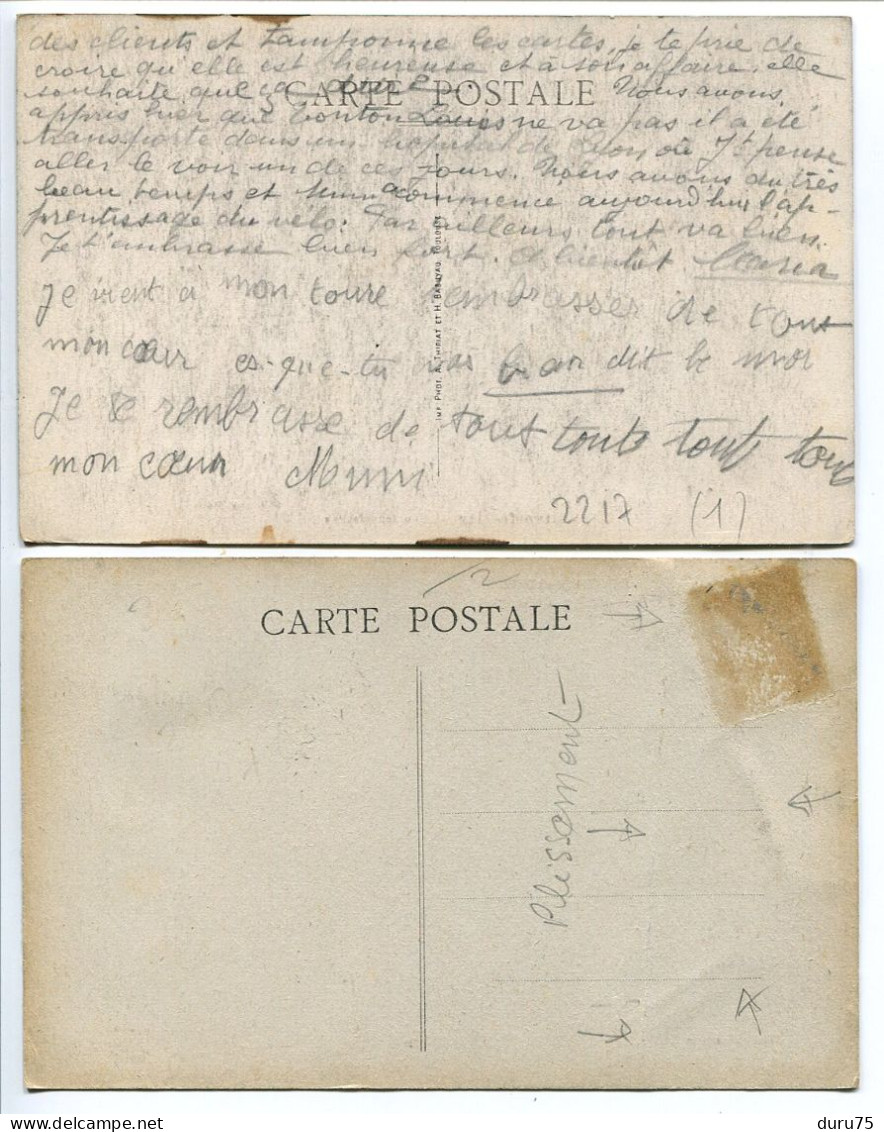 des clients et tamponne les cartes, je te prie de
croire qu'elle est heureuse et à son affaire. elle
souhaite que ça dure. Nous avons
CARTE POSTALE
appris hier que tonton Louis ne va pas il a été
transporté dans un hopital de où J't pense
aller le voir un de ces jours. Nous avons du très
beau temps et Mimi commence aujourd'hui l'ap-
prentissage du vélo. Par ailleurs tout va bien.
Je t'embrasse bien fort. A bientôt Maria
Je vient à mon toure rembrasser de tout
mon cœur es-que-tu dit le mor
Je te rembrasse de tout tout tout tout
mon cœur Mimi
IMP. PHOT. A. THIRIAT ET H. BASUYAU, TOULOUSE
2217 (1)
2
CARTE POSTALE
Plissement
delcampe.net
duru75